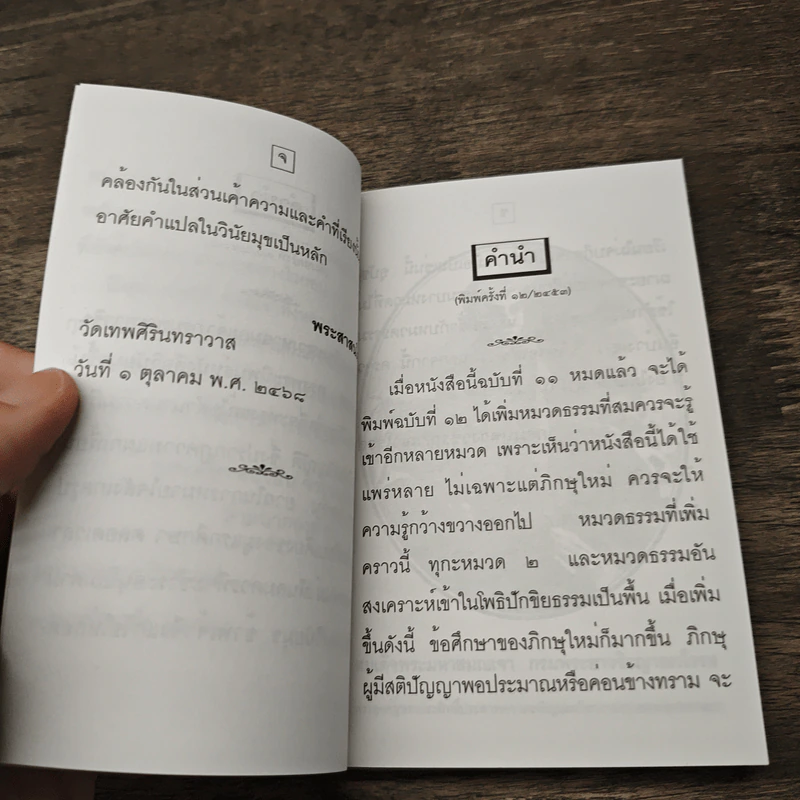 จ
คล้องกันในส่วนเค้าความและคำที่เรียง
อาศัยคำแปลในวินัยมุขเป็นหลัก
พระสาส
วัดเทพศิรินทราวาส
วันที่ ๑ ตุลาคม พ.ศ. ๒๔๖๘
คำนำ
(พิมพ์ครั้งที่ ๑๒/๒๔๕๓)
เมื่อหนังสือนี้ฉบับที่ ๑๑ หมดแล้ว จะได้
พิมพ์ฉบับที่ ๑๒ ได้เพิ่มหมวดธรรมที่สมควรจะรู้
เข้าอีกหลายหมวด เพราะเห็นว่าหนังสือนี้ได้ใช้
แพร่หลาย ไม่เฉพาะแต่ภิกษุใหม่ ควรจะให้
ความรู้กว้างขวางออกไป หมวดธรรมที่เพิ่ม
คราวนี้ ทุกะหมวด ๒ และหมวดธรรมอัน
สงเคราะห์เข้าในโพธิปักขิยธรรมเป็นพื้น เมื่อเพิ่ม
ขึ้นดังนี้ ข้อศึกษาของภิกษุใหม่ก็มากขึ้น ภิกษุ
ผู้มีสติปัญญาพอประมาณหรือค่อนข้างทราม จะ